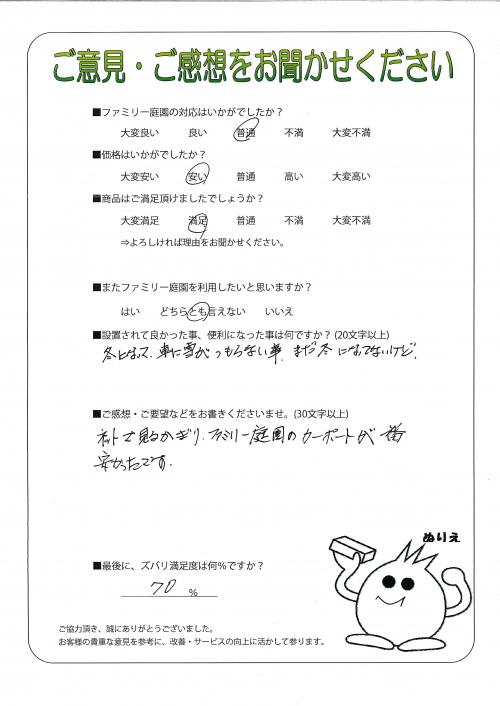 ご意見・ご感想をお聞かせください
■ファミリー庭園の対応はいかがでしたか？
大変良い　良い　普通　不満　大変不満
■価格はいかがでしたか？
大変安い　安い　普通　高い　大変高い
■商品はご満足頂けましたでしょうか？
大変満足　満足　普通　不満　大変不満
⇒よろしければ理由をお聞かせください。
■またファミリー庭園を利用したいと思いますか？
はい　どちらとも言えない　いいえ
■設置されて良かった事、便利になった事は何ですか？(20文字以上)
冬となって、車に雪がつもらない事。まだ冬になってないけど。
■ご感想・ご要望などをお書きくださいませ。(30文字以上)
ネットで見るかぎり、ファミリー庭園のカーポートが一番
安かったです。
ぬりえ
■最後に、ズバリ満足度は何％ですか？
70 ％
ご協力頂き、誠にありがとうございました。
お客様の貴重な意見を参考に、改善・サービスの向上に活かして参ります。